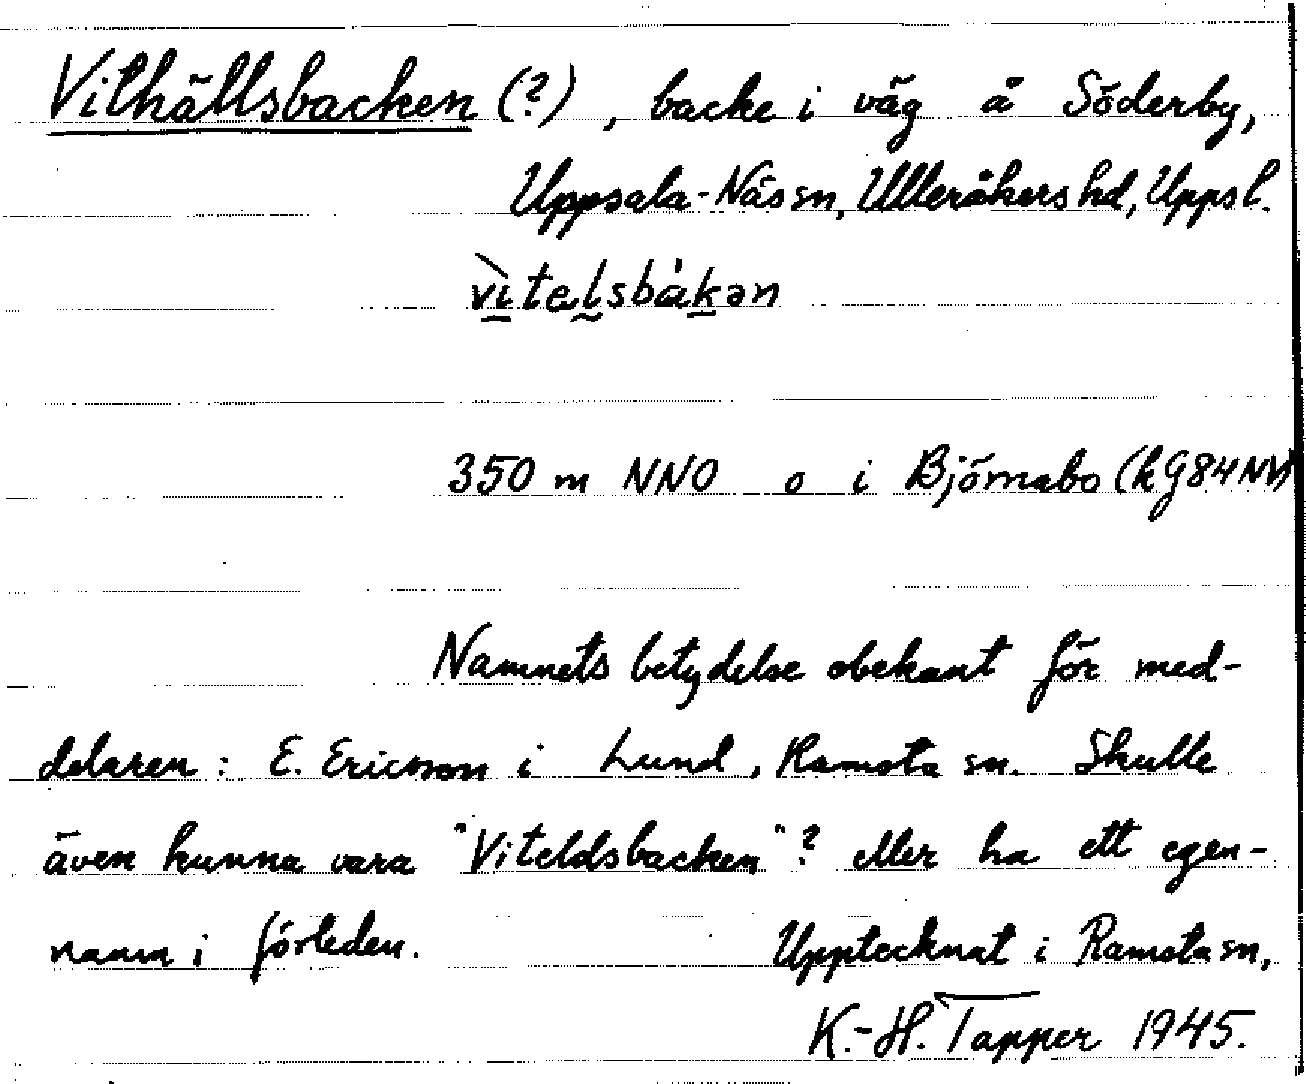 Vithällsbacken (?), backe i väg å Söderby,
Uppsala-Näs sn, Ulleråkers hd, Uppsl.
vìtelsbákən
350 m NNO o i Björnabo (kG84NV)
Namnets betydelse obekant för med-
delaren: E. Ericsson i Lund, Ramsta sn. Skulle
även kunna vara "Viteldsbacken"? eller ha ett egen-
namn i förleden. Upptecknat i Ramsta sn,
K.-H. Tapper 1945.